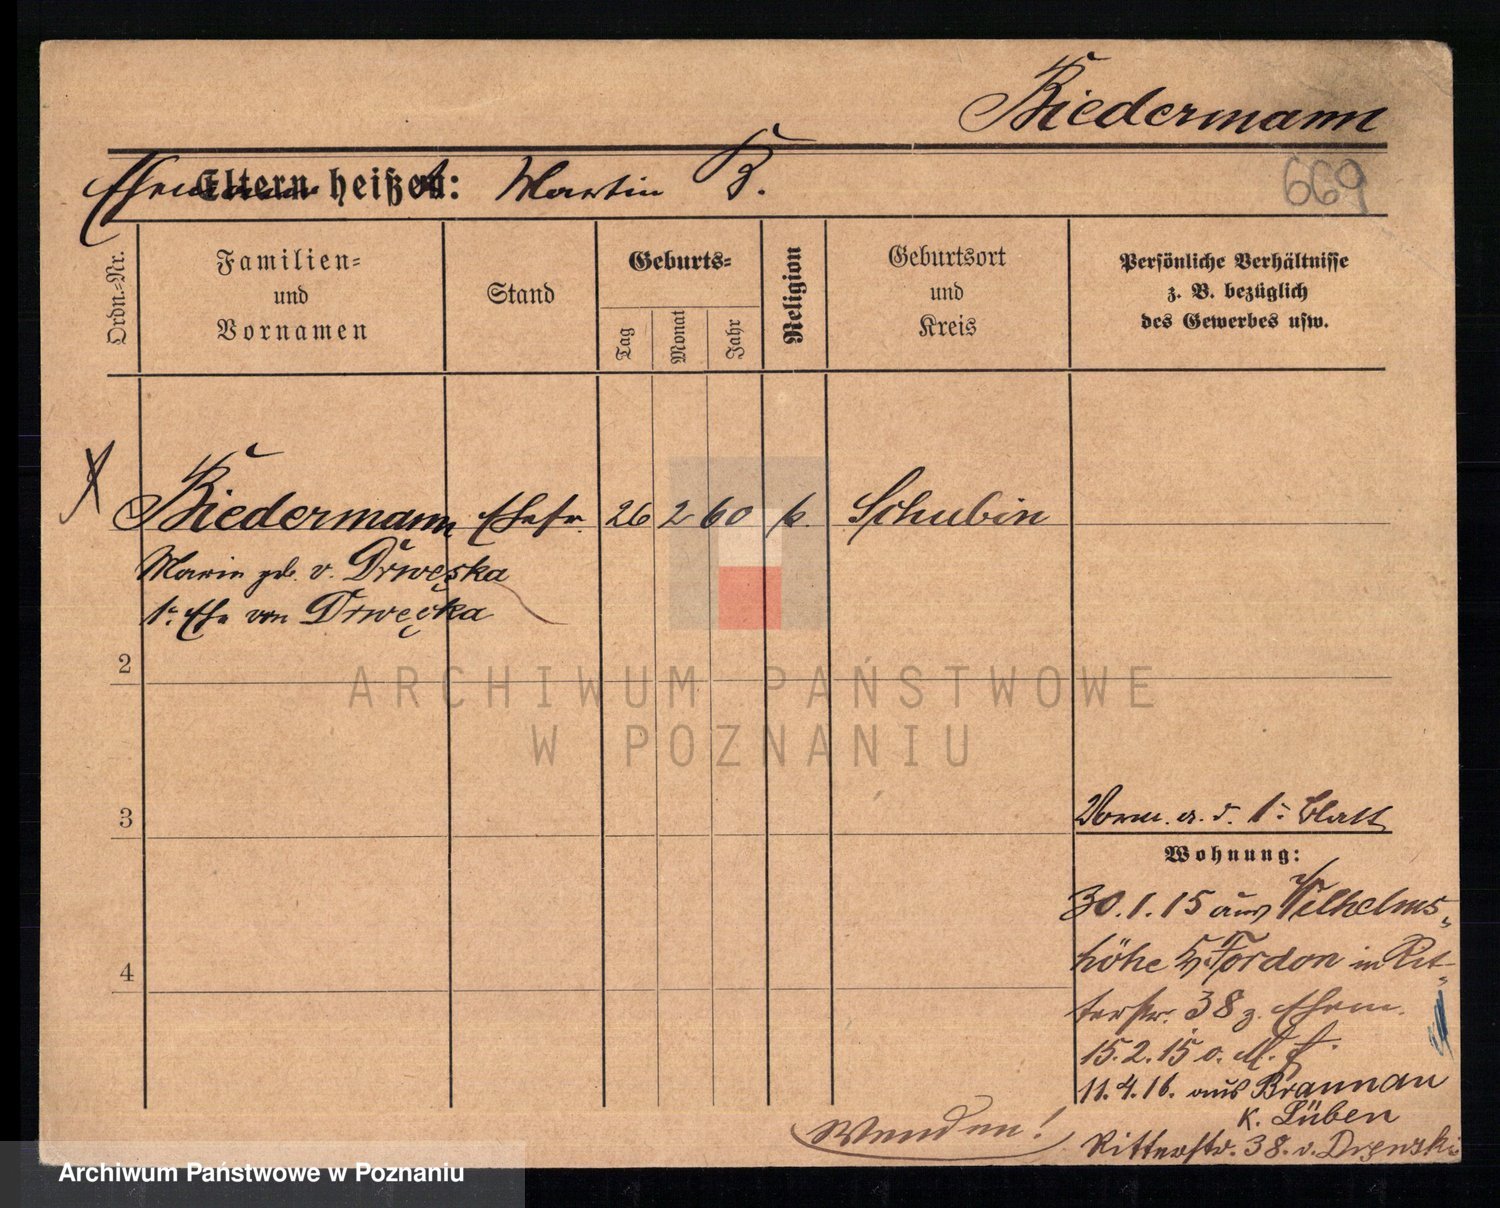 Biedermann
669
Eltern heißen: Martin B.
Ordn.-Nr.
Familien-
und
Vornamen
Stand
Geburts-
Tag
Monat
Jahr
Religion
Geburtsort
und
Kreis
Persönliche Verhältnisse
z. B. bezüglich
des Gewerbes usw.
Biedermann Ehefr. 26 2 60 k. Schubin
Marie geb. v. Drwęska
1. Ehe von Drwęska
2
3
4
Verm. a. d. 1. Blatt
Wohnung:
30.1.15 aus Wilhelms-
höhe Fordon in Rit-
terstr. 38 z. Ehem.
15.2.15 o.
11.4.16. aus Braunau
K. Lüben
Ritterstr. 38. v.
Wenden!
ARCHIWUM PAŃSTWOWE
W POZNANIU
Archiwum Państwowe w Poznaniu